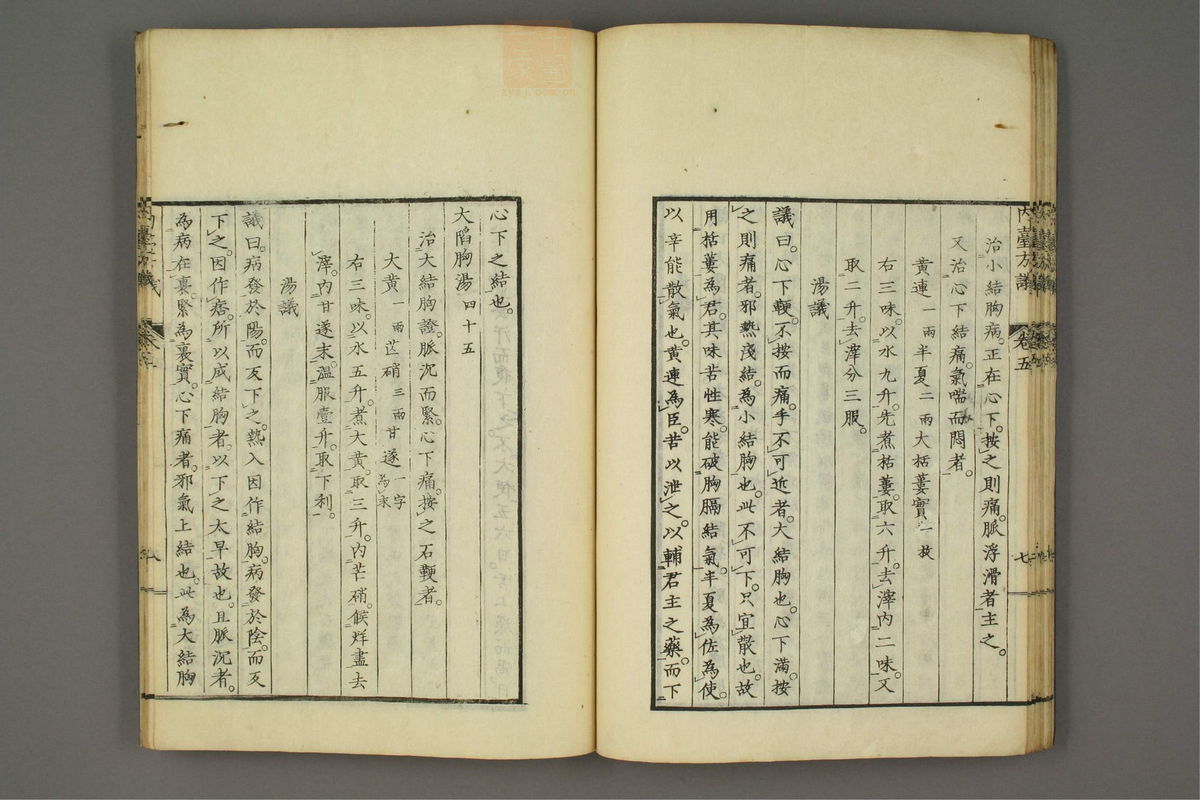 內臺方議 卷五 七
治小結胸病。正在心下。按之則痛。脈浮滑者主之。
又治心下結痛。氣喘而悶者。
黃連一兩半夏二兩大栝蔞實一枚
右三味。以水九升。先煮栝蔞。取六升。去滓內二味。又
取二升。去滓分三服。
湯議
議曰。心下鞕。不按而痛。手不可近者。大結胸也。心下滿。按
之則痛者。邪熱淺結。為小結胸也。此不可下。只宜散也。故
用栝蔞為君。其味苦性寒。能破胸膈結氣。半夏為佐為使。
以辛能散氣也。黃連為臣。苦以泄之。以輔君主之藥。而下
心下之結也。
大陷胸湯 四十五
治大結胸證。脈沉而緊。心下痛。按之石鞕者。
大黃一兩芒硝三兩甘遂一字為末
右三味。以水五升。煮大黃。取三升。內芒硝。候烊盡去
滓。內甘遂末。溫服壹升。取下利。
湯議
議曰。病發於陽。而反下之。熱入因作結胸。病發於陰。而反
下之。因作痞。所以成結胸者。以下之太早故也。且脈沉者。
為病在裏。緊為裏實。心下痛者。邪氣上結也。此為大結胸